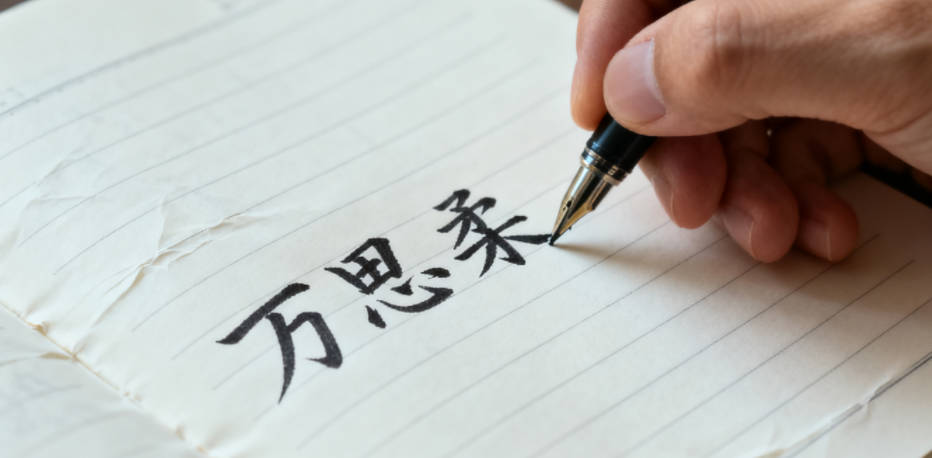 万思柔